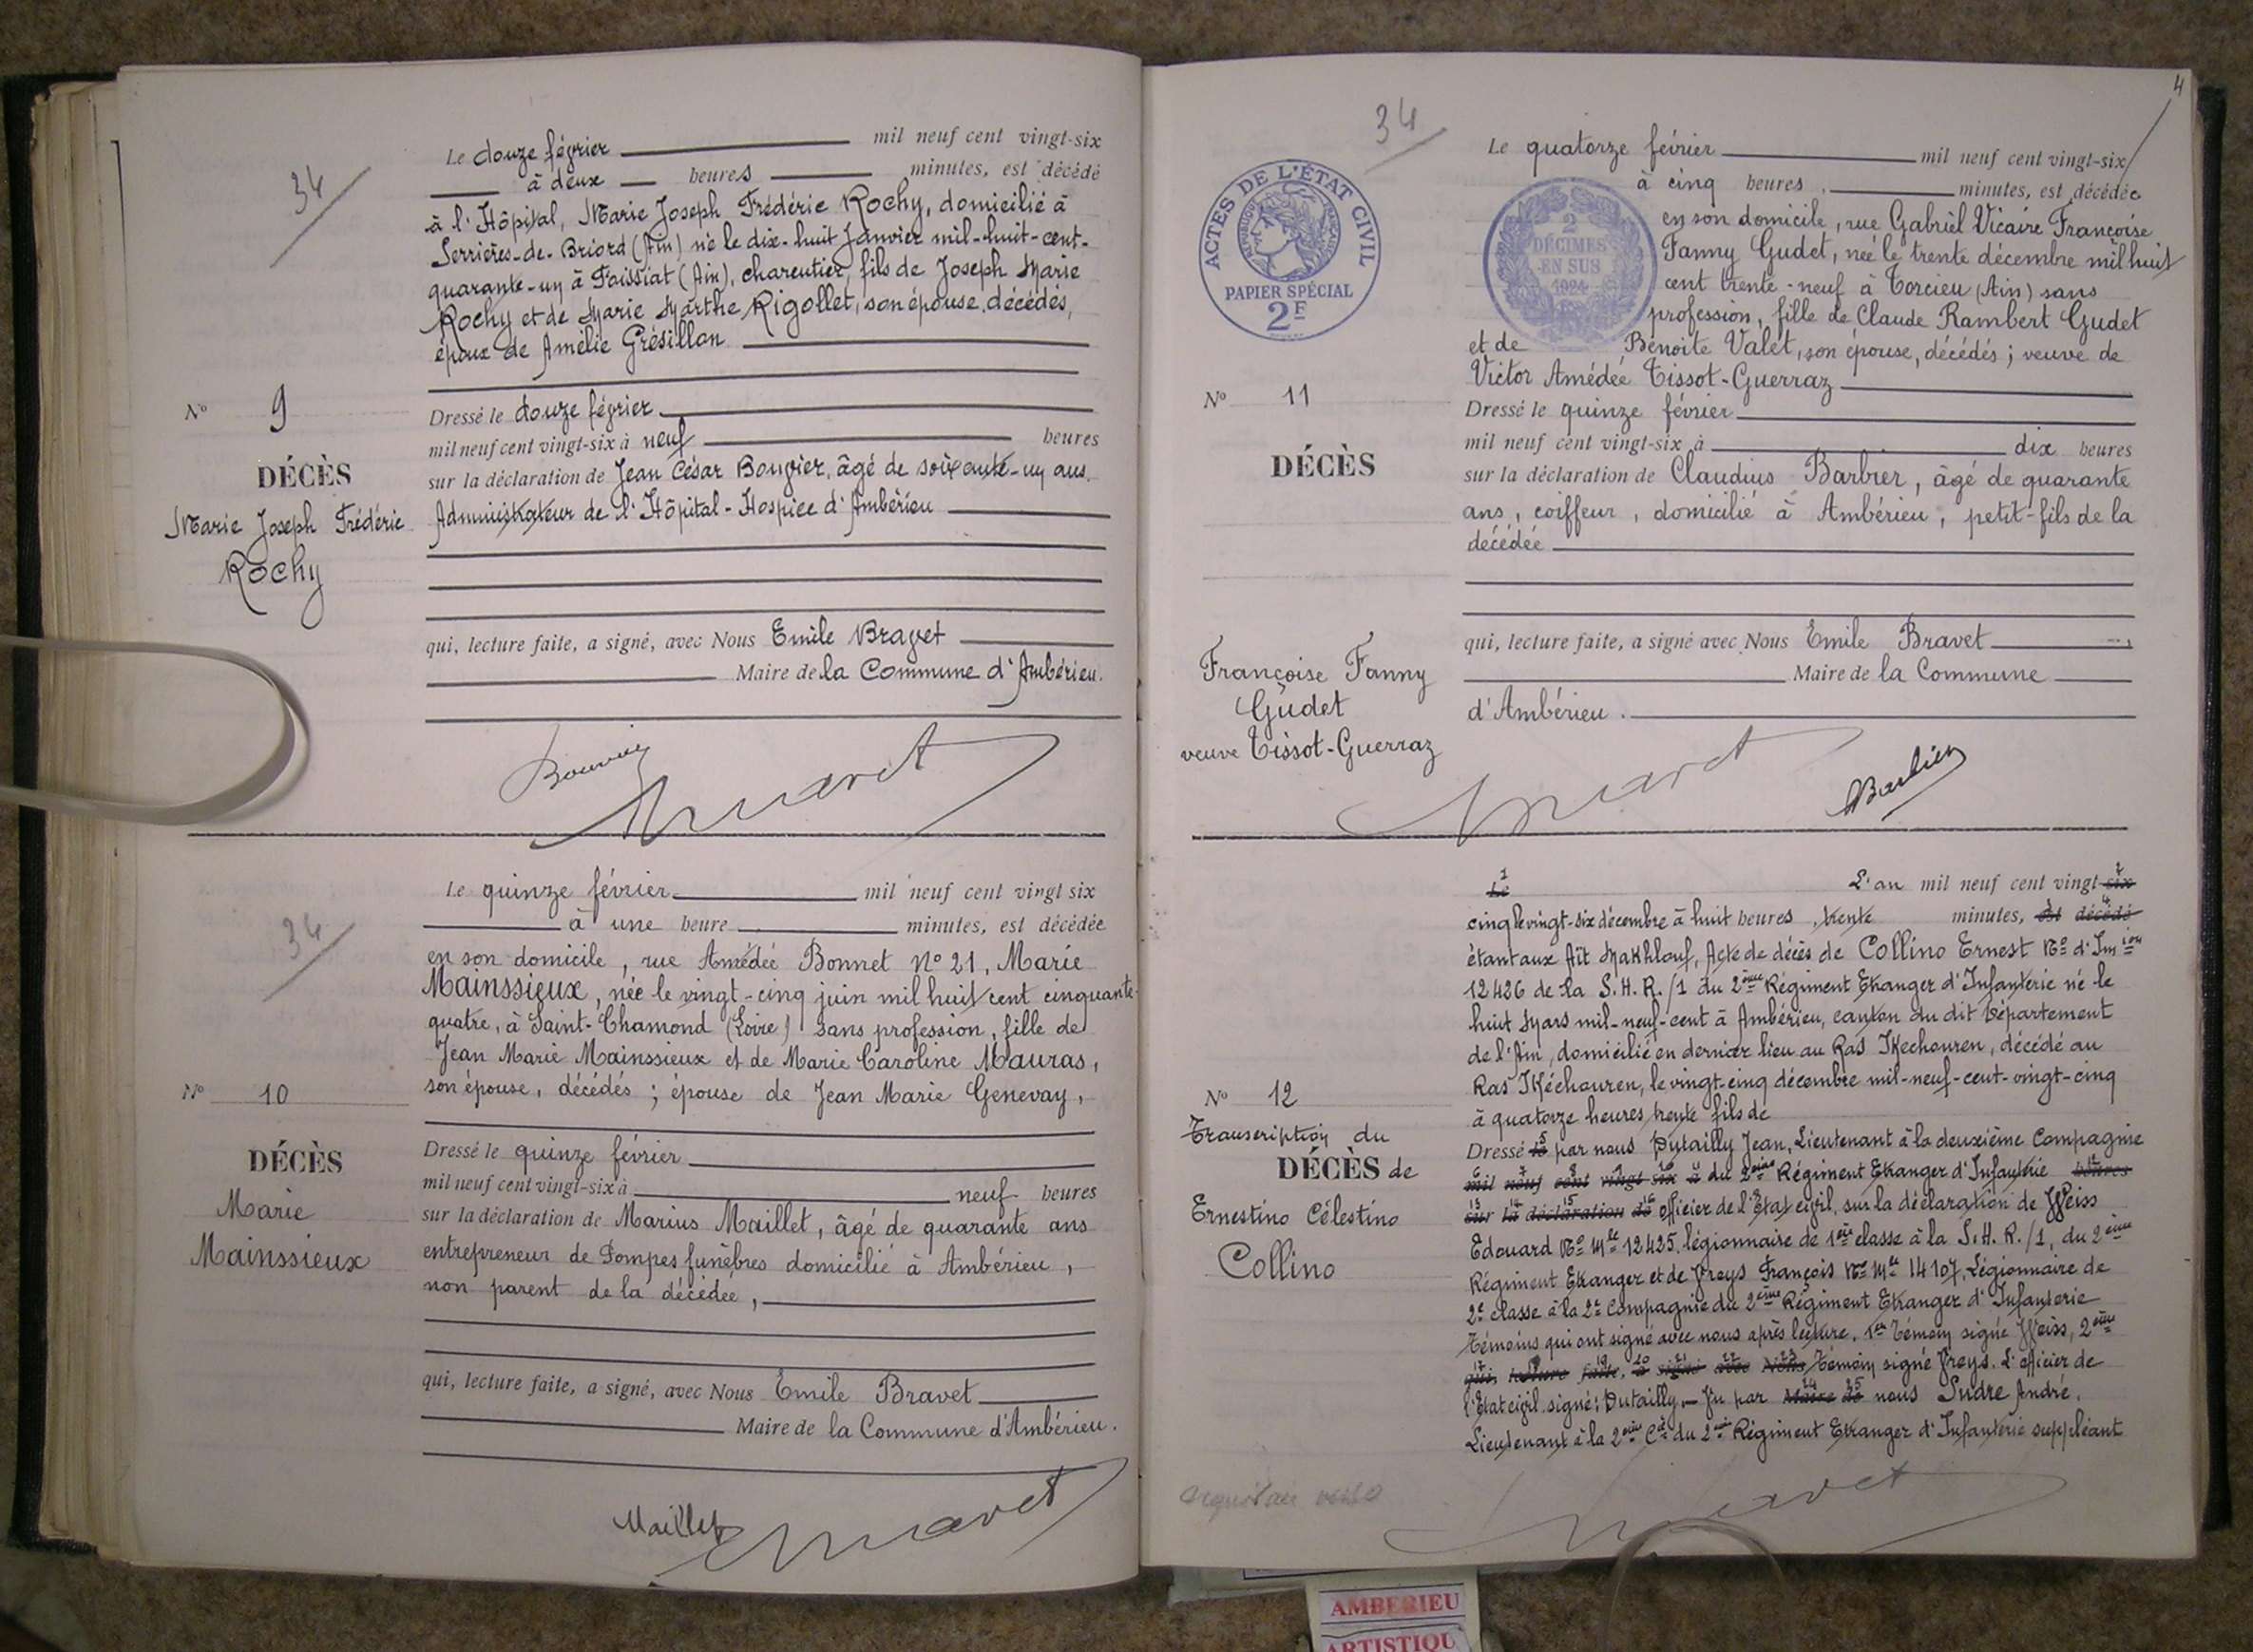 34
Le douze février mil neuf cent vingt-six
à deux heures minutes, est décédé
à l'Hôpital, Marie Joseph Frédéric Rochy, domicilié à
Serrières-de-Briord (Ain) né le dix-huit Janvier mil-huit-cent-
quarante-un à Faissiat (Ain), charentier, fils de Joseph Marie
Rochy et de Marie Marthe Rigollet, son épouse, décédés,
époux de Amélie Grésillon
Nº 9
DÉCÈS
Marie Joseph Frédéric
Rochy
Dressé le douze février
mil neuf cent vingt-six à neuf heures
sur la déclaration de Jean César Bouvier, âgé de soixante-un ans.
Administrateur de l'Hôpital-Hospice d'Ambérieu
qui, lecture faite, a signé, avec Nous Emile Bravet
Maire de la Commune d'Ambérieu.
Bouvier
Bravet
34
Le quinze février mil neuf cent vingt six
à une heure minutes, est décédée
en son domicile, rue Amédée Bonnet Nº 21, Marie
Mainssieux, née le vingt-cinq juin mil huit cent cinquante-
quatre, à Saint-Chamond (Loire) sans profession, fille de
Jean Marie Mainssieux et de Marie Caroline Mauras,
son épouse, décédés; épouse de Jean Marie Genevay,
Nº 10
DÉCÈS
Marie
Mainssieux
Dressé le quinze février
mil neuf cent vingt-six à neuf heures
sur la déclaration de Marius Maillet, âgé de quarante ans
entrepreneur de Pompes funèbres domicilié à Ambérieu,
non parent de la décédée,
qui, lecture faite, a signé, avec Nous Emile Bravet
Maire de la Commune d'Ambérieu.
Maillet
Bravet
4
34
ACTES DE L'ÉTAT CIVIL
RÉPUBLIQUE FRANÇAISE
PAPIER SPÉCIAL
2F
2
DÉCIMES
EN SUS
1924
Le quatorze février mil neuf cent vingt-six
à cinq heures, minutes, est décédée
en son domicile, rue Gabriel Vicaire Françoise
Fanny Gudet, née le trente décembre mil huit
cent trente-neuf à Torcieu (Ain) sans
profession, fille de Claude Rambert Gudet
et de Benoite Valet, son épouse, décédés; veuve de
Victor Amédée Tissot-Guerraz
Nº 11
DÉCÈS
Françoise Fanny
Gudet
veuve Tissot-Guerraz
Dressé le quinze février
mil neuf cent vingt-six à dix heures
sur la déclaration de Claudius Barbier, âgé de quarante
ans, coiffeur, domicilié à Ambérieu, petit-fils de la
décédée
qui, lecture faite, a signé avec Nous Emile Bravet
Maire de la Commune
d'Ambérieu.
Bravet
Barbier
Le L'an mil neuf cent vingt-six
cinq le vingt-six décembre à huit heures, trente minutes, est décédé
étant aux Aït Makhlouf, Acte de décès de Collino Ernest Nº d'Im ion
12426 de la S.H.R./1 du 2ème Régiment Etranger d'Infanterie né le
huit Mars mil-neuf-cent à Ambérieu, canton du dit Département
de l'Ain, domicilié en dernier lieu au Ras Ikechouren, décédé au
Ras Ikéchouren, le vingt-cinq décembre mil-neuf-cent-vingt-cinq
à quatorze heures trente fils de
Nº 12
Transcription du
DÉCÈS de
Ernestino Célestino
Collino
Dressé le par nous Dutailly Jean, Lieutenant à la deuxième Compagnie
mil neuf cent vingt-six à du 2ème Régiment Etranger d'Infanterie heures
sur la déclaration de officier de l'Etat civil, sur la déclaration de Weiss
Edouard Nº Mle 12425, légionnaire de 1ère classe à la S.H.R./1, du 2ème
Régiment Etranger et de Freys François Nº Mle 14107, Légionnaire de
2e classe à la 2e Compagnie du 2ème Régiment Etranger d'Infanterie
Témoins qui ont signé avec nous après lecture, 1er Témoin signé Weiss, 2ème
qui, lecture faite, a signé avec Nous Témoin signé Freys. L'officier de
l'Etat civil signé: Dutailly. Vu par Maire de nous Sudre André,
Lieutenant à la 2ème Cie du 2ème Régiment Etranger d'Infanterie suppléant
Bravet
AMBERIEU
ARTISTIQU